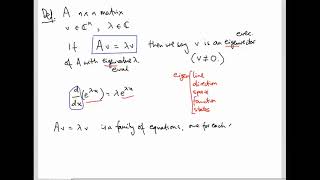 Def. A n×n matrix
v ∈ ℂⁿ, λ ∈ ℂ
If Av = λv then we say v is an eigenvector
evec.
of A with eigenvalue λ (v ≠ 0.)
eval
d/dx (e^{λx}) = λ e^{λx}
eigen line
direction
space
function
states
Av = λv is a family of equations, one for each